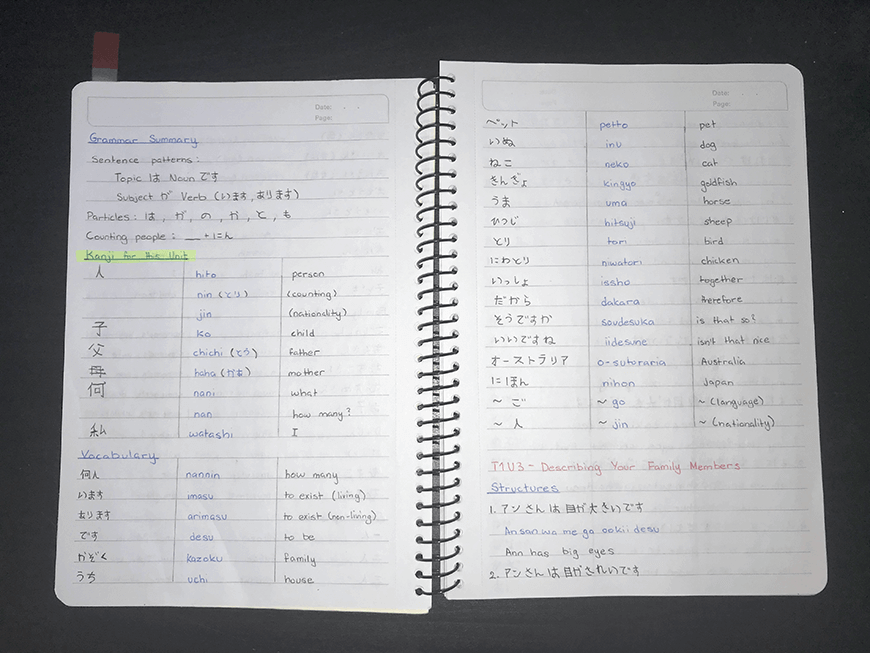 Date: . .
Page:
Grammar Summary
Sentence patterns:
Topic は Noun です
Subject が Verb (います, あります)
Particles: は, が, の, か, と, も
Counting people: __ + にん
Kanji for this Unit
人 hito person
nin (とり) (counting)
jin (nationality)
子 ko child
父 chichi (とう) father
母 haha (かあ) mother
何 nani what
nan how many?
私 watashi I
Vocabulary
何人 nannin how many
います imasu to exist (living)
あります arimasu to exist (non-living)
です desu to be
かぞく kazoku family
うち uchi house
Date: . .
Page:
ペット petto pet
いぬ inu dog
ねこ neko cat
きんぎょ kingyo goldfish
うま uma horse
ひつじ hitsuji sheep
とり tori bird
にわとり niwatori chicken
いっしょ issho together
だから dakara therefore
そうですか soudesuka is that so?
いいですね iidesune isn't that nice
オーストラリア o-sutoraria Australia
にほん nihon Japan
~ ご ~ go ~ (language)
~ 人 ~ jin ~ (nationality)
T1U3 - Describing Your Family Members
Structures
1. アンさんは目が大きいです
Ansan wa me ga ookii desu
Ann has big eyes
2. アンさんは目がきれいです